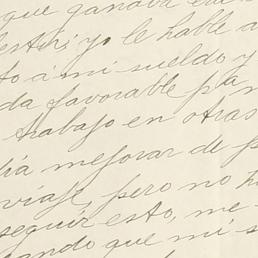 que ganaba era
yo le hablé a
to á mi sueldo y
da favorable pa
trabajo en otras
ía mejorar de p
viaje, pero no h
seguir esto, me
ando que mi s